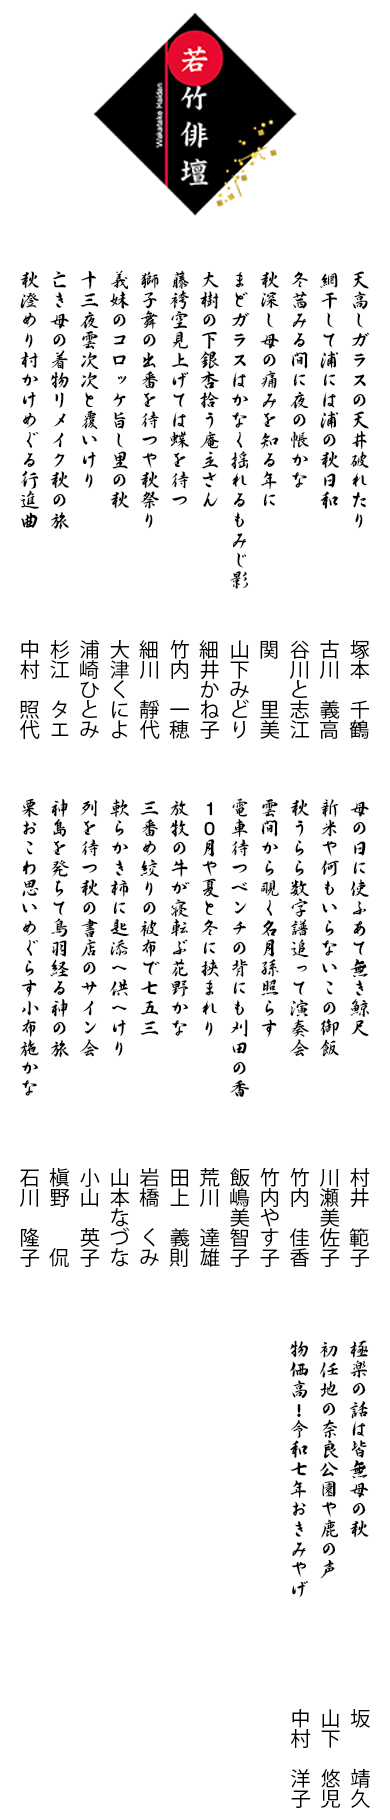 若竹俳壇
Wakatake Haidan
天高しガラスの天井破れたり
塚本 千鶴
網干して浦には浦の秋日和
古川 義高
冬茜みる間に夜の帳かな
谷川と志江
秋深し母の痛みを知る年に
関 里美
まどガラスはかなく揺れるもみじ影
山下みどり
大樹の下銀杏拾う庵主さん
細井かね子
藤袴空見上げては蝶を待つ
竹内 一穂
獅子舞の出番を待つや秋祭り
細川 靜代
義妹のコロッケ旨し里の秋
大津くによ
十三夜雲次次と覆いけり
浦崎ひとみ
亡き母の着物リメイク秋の旅
杉江 タエ
秋澄めり村かけめぐる行進曲
中村 照代
母の日に使ふあて無き鯨尺
村井 範子
新米や何もいらないこの御飯
川瀬美佐子
秋うらら数字譜追って演奏会
竹内 佳香
雲間から覗く名月孫照らす
竹内やす子
電車待つベンチの背にも刈田の香
飯嶋美智子
10月や夏と冬に挟まれり
荒川 達雄
放牧の牛が寝転ぶ花野かな
田上 義則
三番め絞りの被布で七五三
岩橋 くみ
軟らかき柿に匙添へ供へけり
山本なづな
列を待つ秋の書店のサイン会
小山 英子
神島を発ちて鳥羽経る神の旅
槇野 侃
栗おこわ思いめぐらす小布施かな
石川 隆子
極楽の話は皆無母の秋
坂 靖久
初任地の奈良公園や鹿の声
山下 悠児
物価高!令和七年おきみやげ
中村 洋子